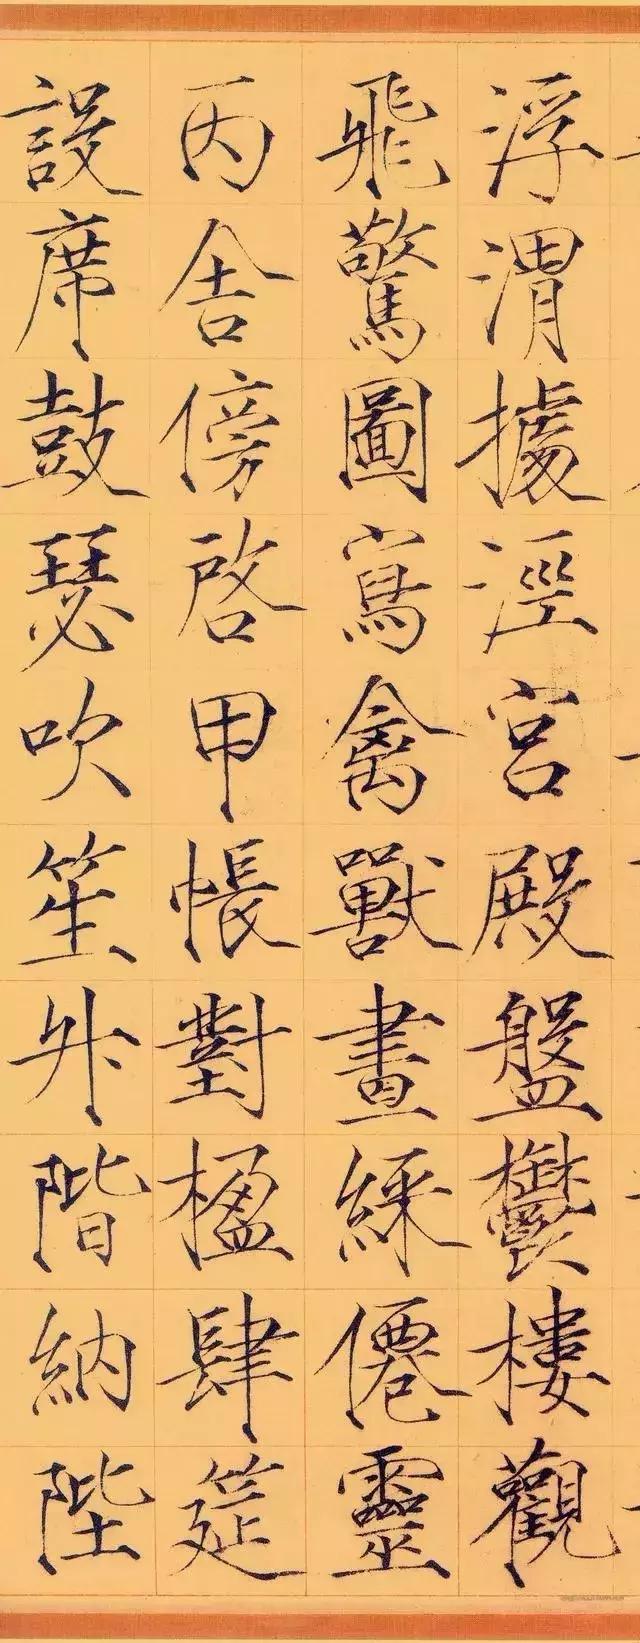 浮渭據涇宮殿盤欝樓觀
飛驚圖寫禽獸畫綵僊靈
丙舍傍啓甲帳對楹肆筵
設席鼓瑟吹笙升階納陛